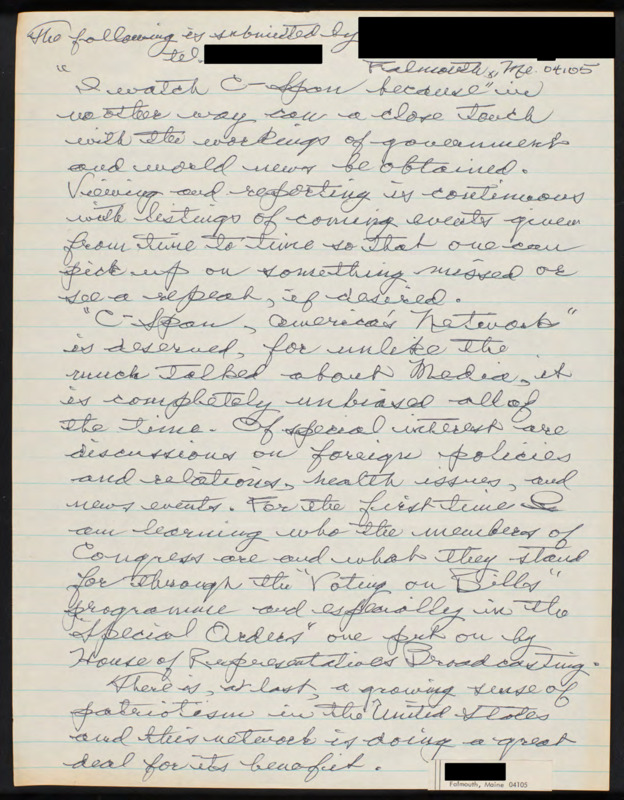 The following is submitted by
tel.
Falmouth, Me. 04105
"I watch C-Span because" in
no other way can a close touch
with the workings of government
and world news be obtained.
Viewing and reporting is continuous
with listings of coming events given
from time to time so that one can
pick up on something missed or
see a repeat, if desired.
"C-Span, America's Network"
is deserved, for unlike the
much talked about Media, it
is completely unbiased all of
the time. Of special interest are
discussions on foreign policies
and relations, health issues, and
news events. For the first time I
am learning who the members of
Congress are and what they stand
for through the "Voting on Bills"
programme and especially in the
"Special Orders" one put on by
House of Representatives Broadcasting.
There is, at last, a growing sense of
patriotism in the United States
and this network is doing a great
deal for its benefit.
Falmouth, Maine 04105